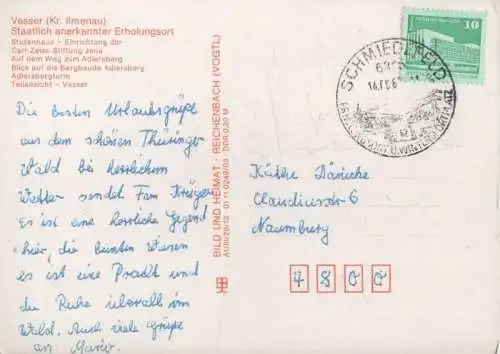 Vesser (Kr. Ilmenau)
Staatlich anerkannter Erholungsort
Stutenhaus – Einrichtung der
Carl-Zeiss-Stiftung Jena
Auf dem Weg zum Adlersberg
Blick auf die Bergbaude Adlersberg
Adlersbergturm
Teilansicht – Vesser
Die besten Urlaubsgrüße
aus dem schönen Thüringer
Wald bei herrlichem
Wetter sendet Fam. Krüger
Es ist eine herrliche Gegend
hier, die bunten Wiesen
es ist eine Pracht und
die Ruhe überall im
Wald. Auch viele Grüße
an Mario.
BILD UND HEIMAT · REICHENBACH (VOGTL)
A1/III/26/13 · 01 11 0249/03 · DDR 0,20 M
SCHMIEDEFELD
ERHOLUNGSORT U. WINTERSPORTPLATZ
10
Käthe
Claudiusstr 6
Naumburg
4800